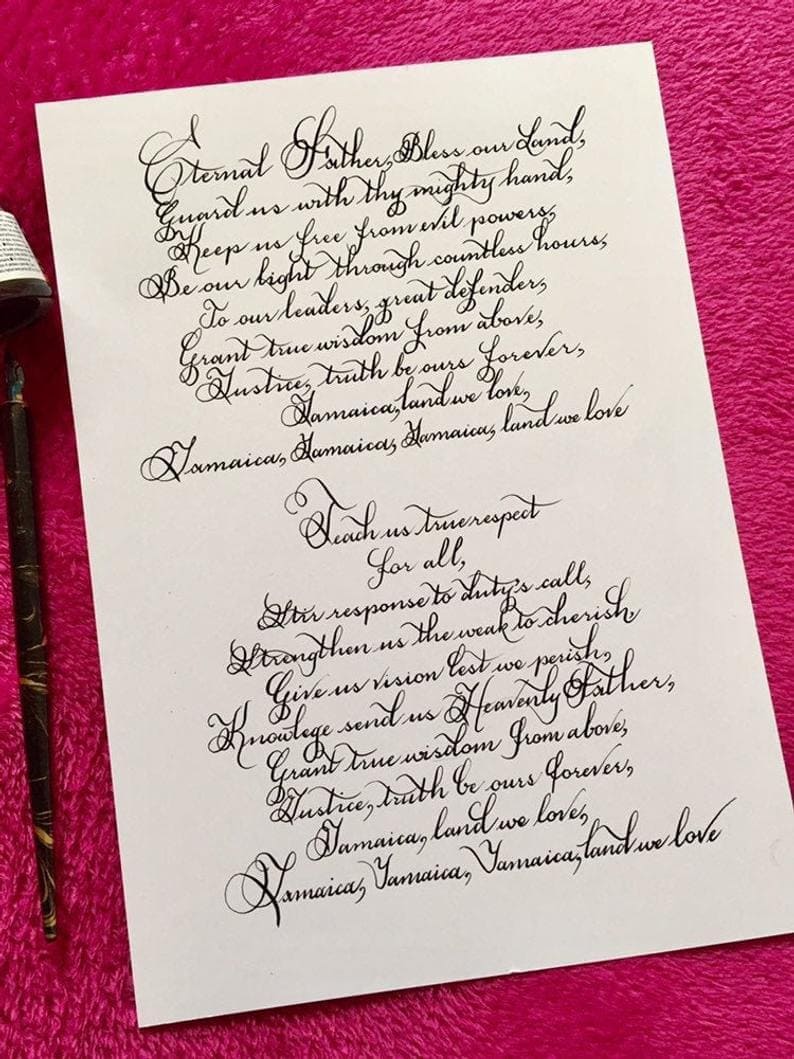 Eternal Father, Bless our Land,
Guard us with thy mighty hand,
Keep us free from evil powers,
Be our light through countless hours,
To our leaders, great defender,
Grant true wisdom from above,
Justice, truth be ours forever,
Jamaica, land we love,
Jamaica, Jamaica, Jamaica, land we love
Teach us true respect
for all,
Stir response to duty's call,
Strengthen us the weak to cherish,
Give us vision lest we perish,
Knowlege send us Heavenly Father,
Grant true wisdom from above,
Justice, truth be ours forever,
Jamaica, land we love,
Jamaica, Jamaica, Jamaica, land we love